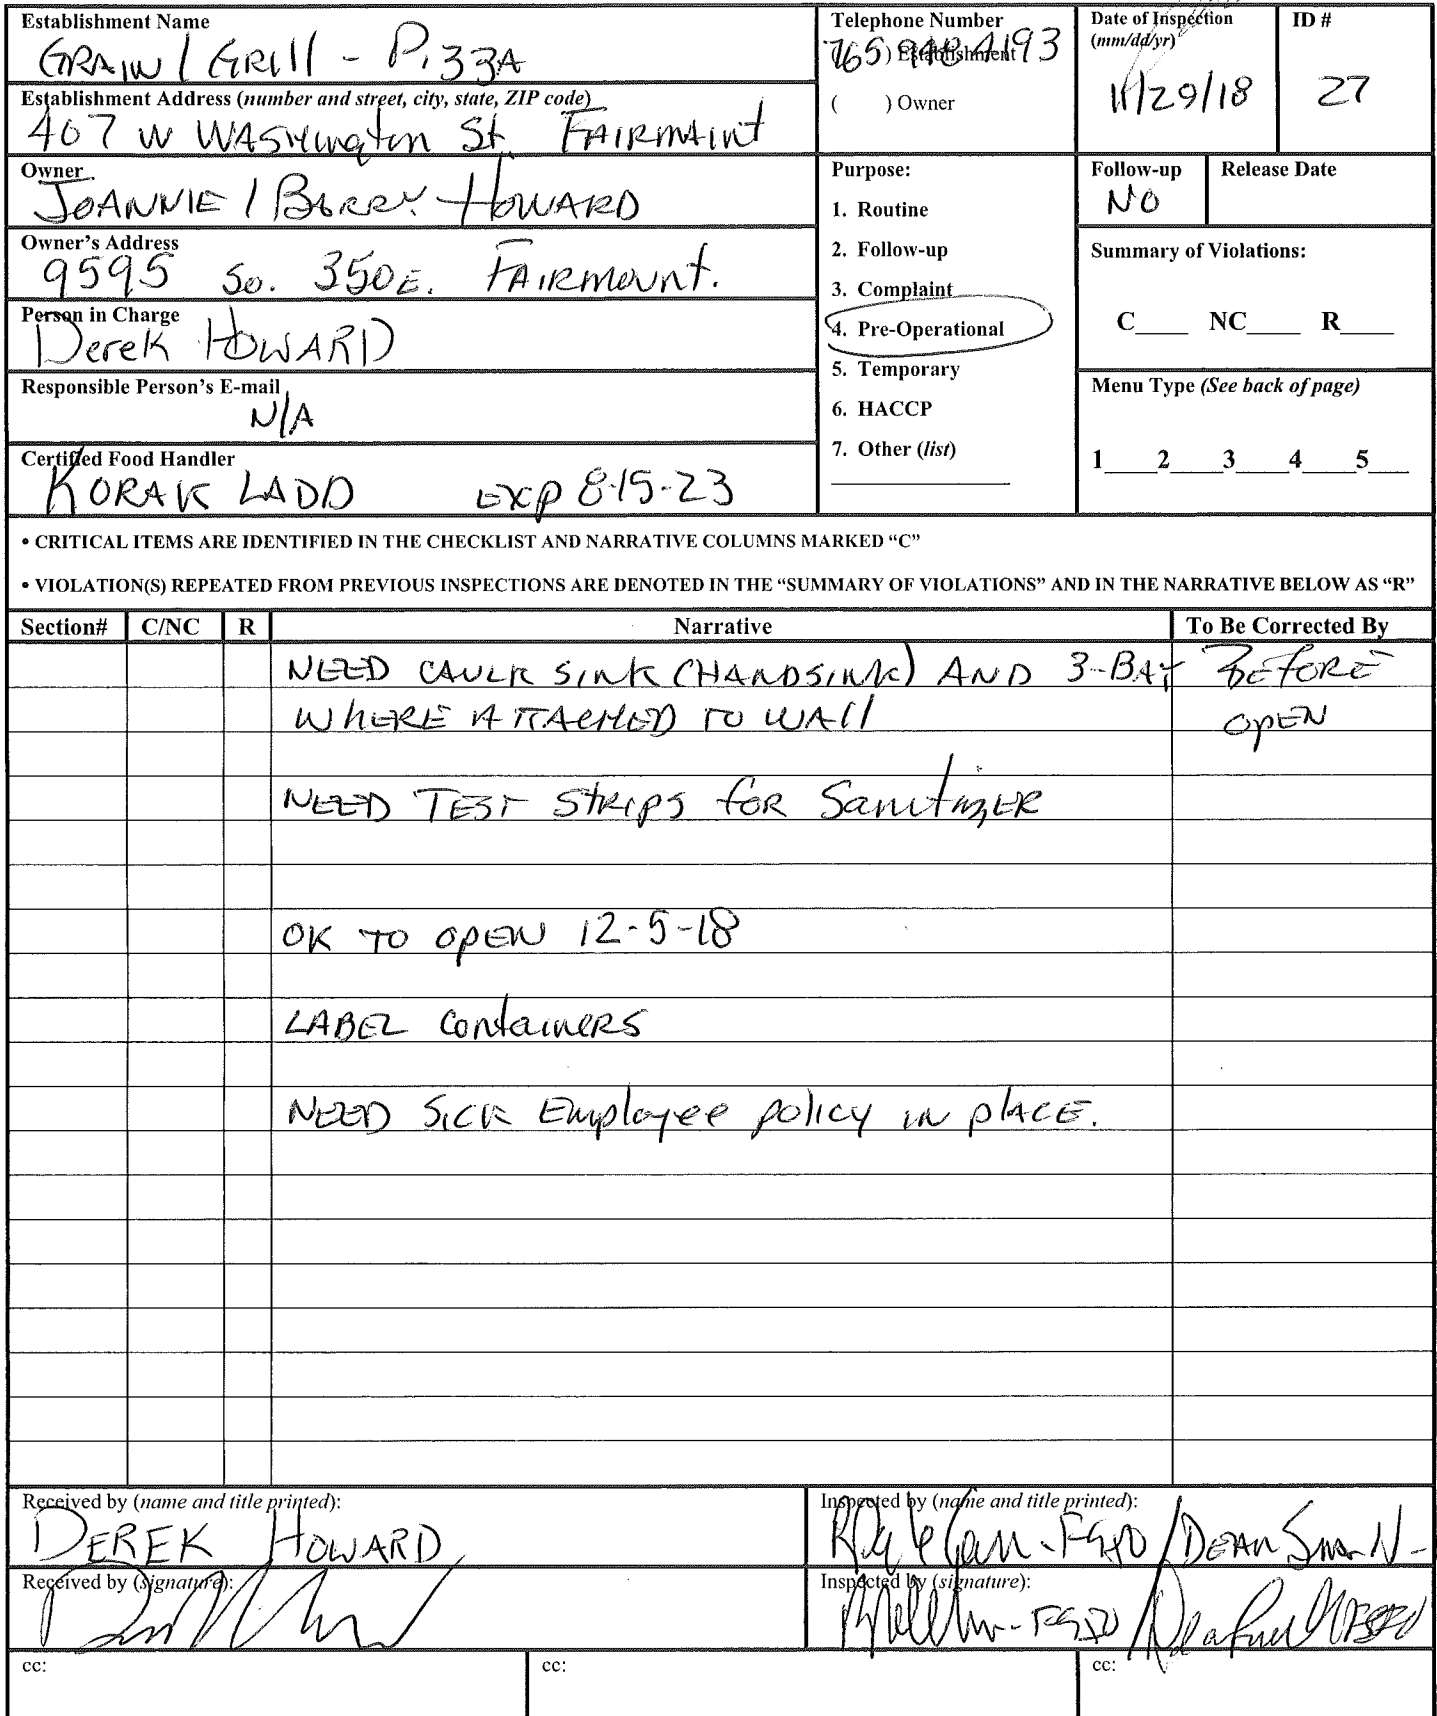 Establishment Name
GRAIN / GRILL - PIZZA
Establishment Address (number and street, city, state, ZIP code)
407 W WASHINGTON St. FAIRMOUNT
Owner
JOANNIE / BARRY HOWARD
Owner's Address
9595 So. 350 E. FAIRMOUNT.
Person in Charge
Derek HOWARD
Responsible Person's E-mail
N/A
Certified Food Handler
KORAK LADD EXP 8-15-23
Telephone Number
765 ) Establishment 4193
( ) Owner
Date of Inspection
(mm/dd/yr)
11/29/18
ID #
27
Purpose:
1. Routine
2. Follow-up
3. Complaint
4. Pre-Operational
5. Temporary
6. HACCP
7. Other (list)
Follow-up
NO
Release Date
Summary of Violations:
C____ NC____ R____
Menu Type (See back of page)
1____2____3____4____5____
• CRITICAL ITEMS ARE IDENTIFIED IN THE CHECKLIST AND NARRATIVE COLUMNS MARKED “C”
• VIOLATION(S) REPEATED FROM PREVIOUS INSPECTIONS ARE DENOTED IN THE “SUMMARY OF VIOLATIONS” AND IN THE NARRATIVE BELOW AS “R”
Section# C/NC R Narrative To Be Corrected By
NEED CAULK SINK (HANDSINK) AND 3-BAY BEFORE
WHERE ATTACHED TO WALL OPEN
NEED TEST STRIPS FOR Sanitizer
OK TO OPEN 12-5-18
LABEL Containers
NEED SICK Employee policy IN PLACE.
Received by (name and title printed):
DEREK HOWARD
Inspected by (name and title printed):
DEAN
Received by (signature):
Inspected by (signature):
cc: cc: cc: